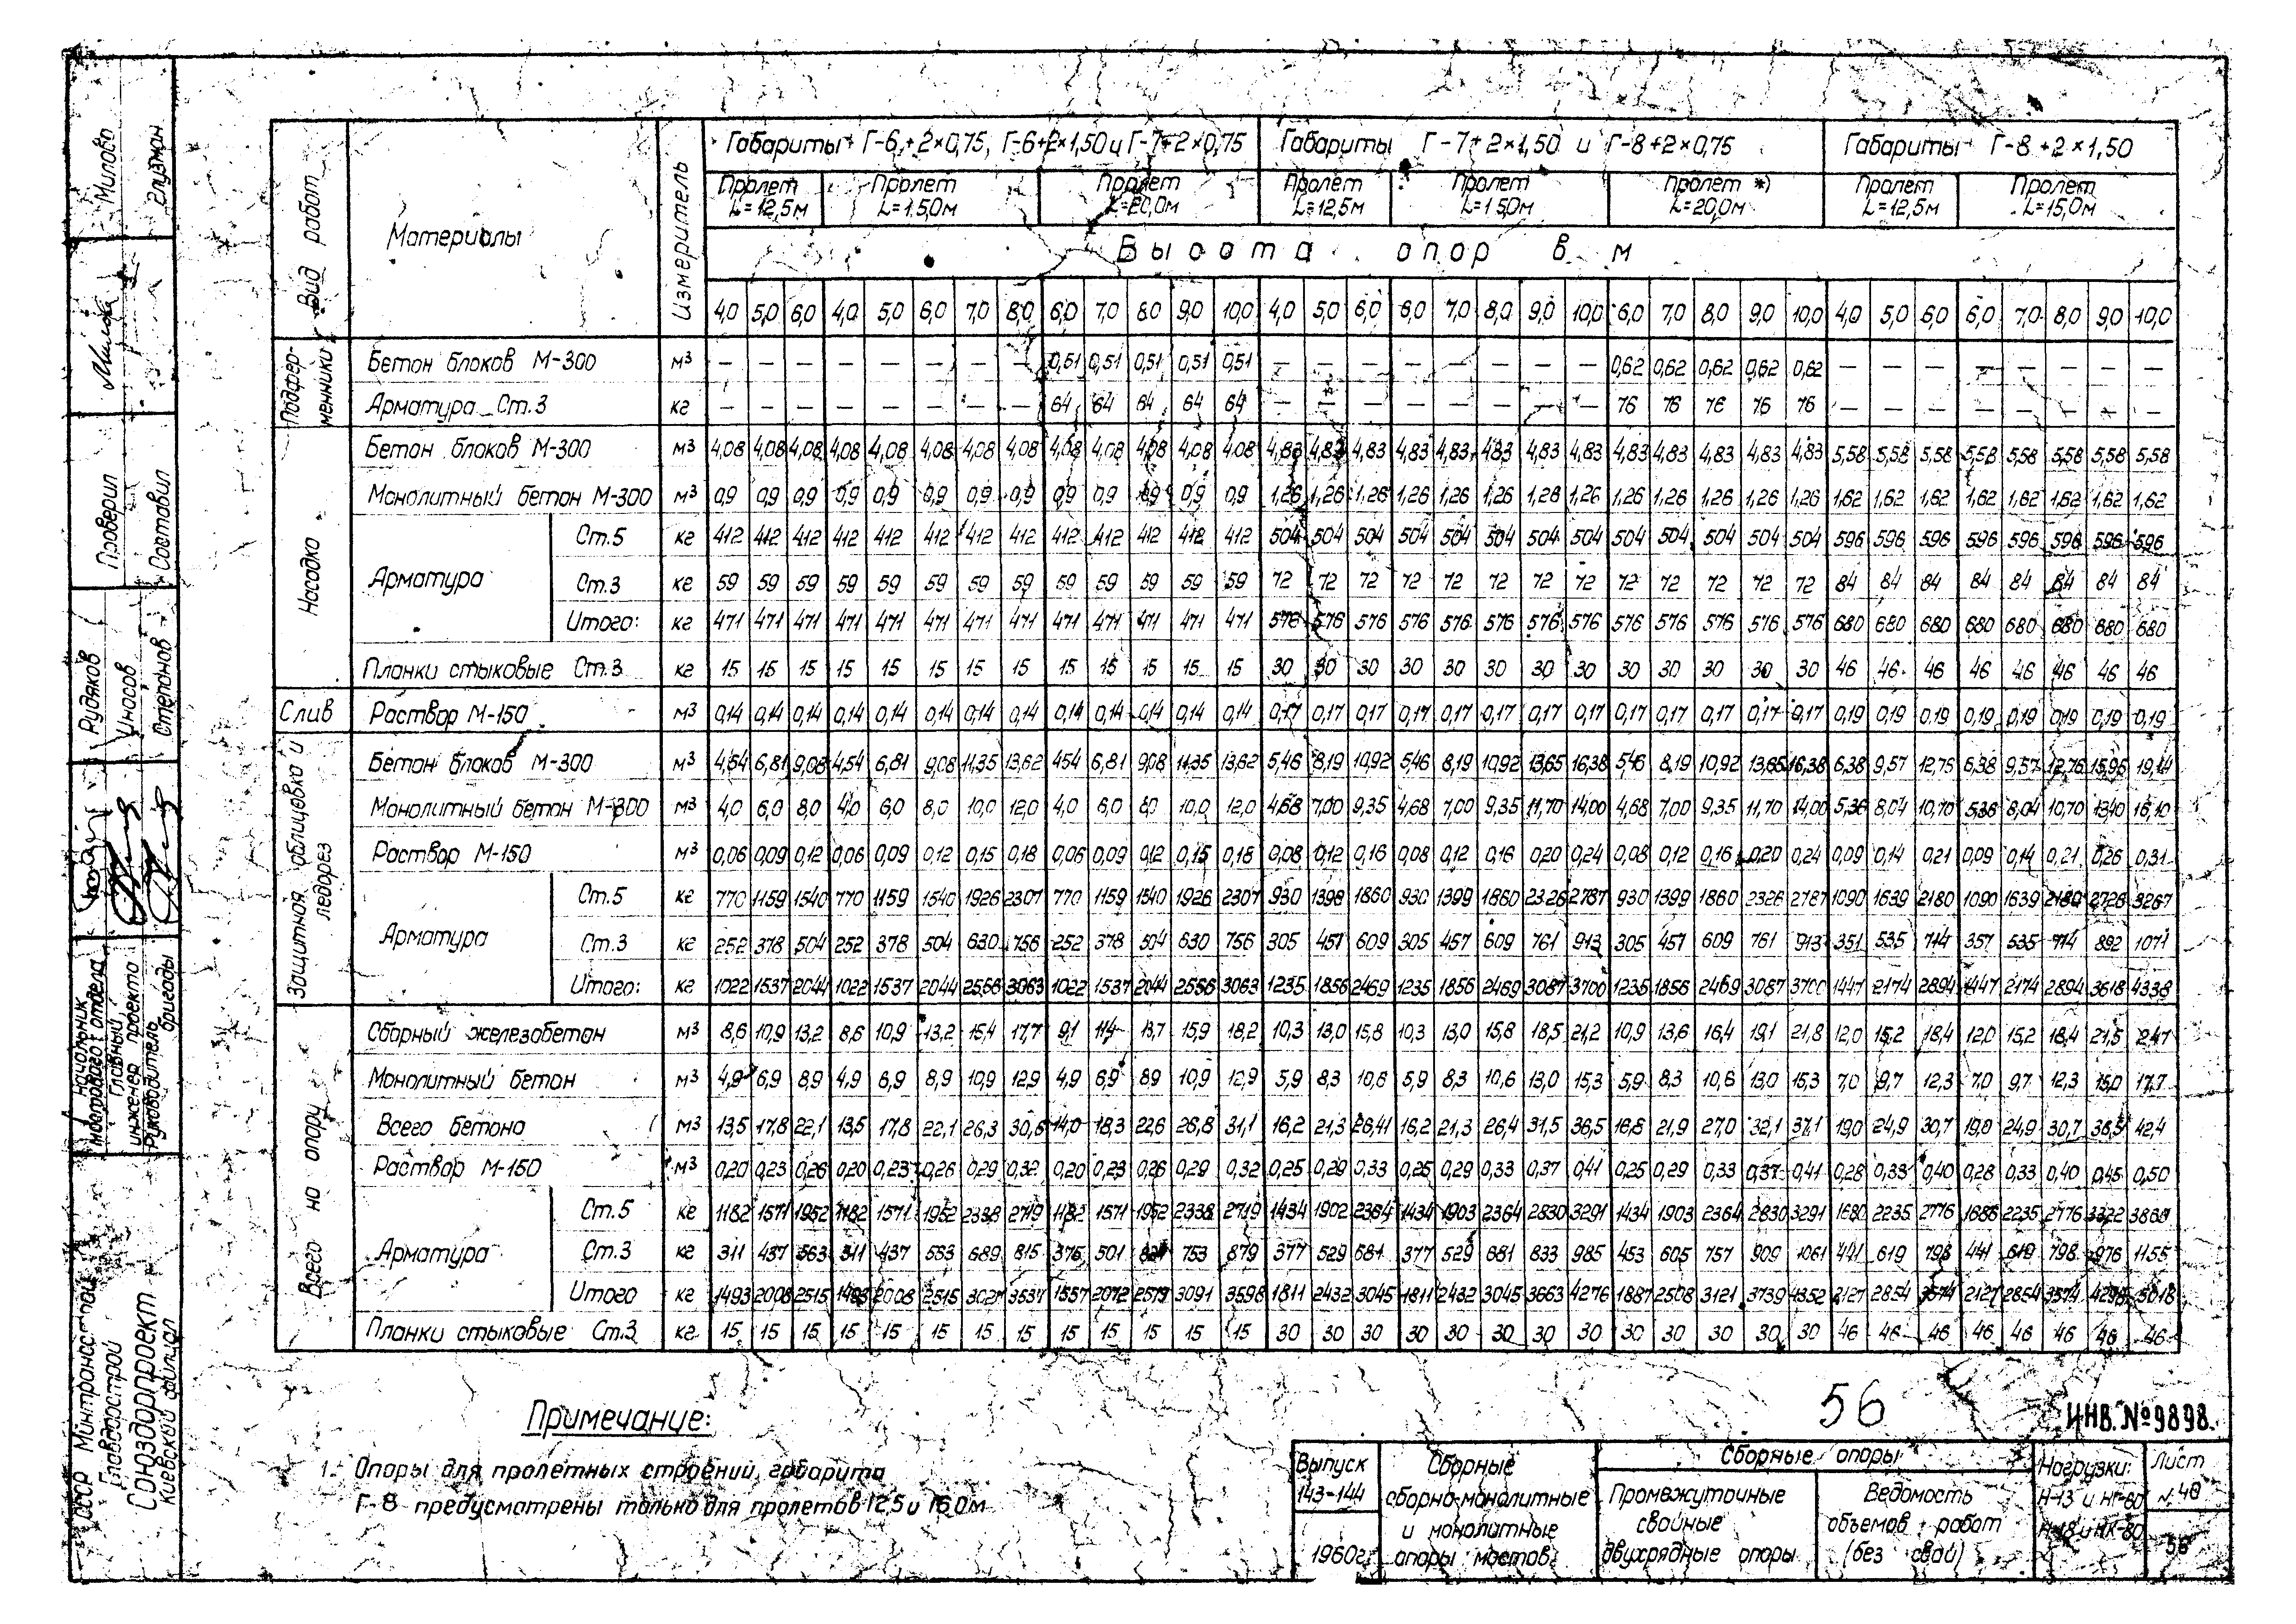 Вид работ
Материалы
Измеритель
Габариты Г-6+2×0,75, Г-6+2×1,50 и Г-7+2×0,75
Габариты Г-7+2×1,50 и Г-8+2×0,75
Габариты Г-8+2×1,50
Пролет L=12,5м
Пролет L=15,0м
Пролет L=20,0м
Пролет L=12,5м
Пролет L=15,0м
Пролет *) L=20,0м
Пролет L=12,5м
Пролет L=15,0м
Высота опор в м
4,0 5,0 6,0 4,0 5,0 6,0 7,0 8,0 6,0 7,0 8,0 9,0 10,0 4,0 5,0 6,0 6,0 7,0 8,0 9,0 10,0 6,0 7,0 8,0 9,0 10,0 4,0 5,0 6,0 6,0 7,0 8,0 9,0 10,0
Подферменники
Бетон блоков М-300 м³ — — — — — — — — 0,51 0,51 0,51 0,51 0,51 — — — — — — — — 0,62 0,62 0,62 0,62 0,62 — — — — — — — —
Арматура Ст.3 кг — — — — — — — — 64 64 64 64 64 — — — — — — — — 76 76 76 76 76 — — — — — — — —
Насадка
Бетон блоков М-300 м³ 4,08 4,08 4,08 4,08 4,08 4,08 4,08 4,08 4,08 4,08 4,08 4,08 4,08 4,83 4,83 4,83 4,83 4,83 4,83 4,83 4,83 4,83 4,83 4,83 4,83 4,83 5,58 5,58 5,58 5,58 5,58 5,58 5,58 5,58
Монолитный бетон М-300 м³ 0,9 0,9 0,9 0,9 0,9 0,9 0,9 0,9 0,9 0,9 0,9 0,9 0,9 1,26 1,26 1,26 1,26 1,26 1,26 1,26 1,26 1,26 1,26 1,26 1,26 1,26 1,62 1,62 1,62 1,62 1,62 1,62 1,62 1,62
Арматура
Ст.5 кг 412 412 412 412 412 412 412 412 412 412 412 412 412 504 504 504 504 504 504 504 504 504 504 504 504 504 596 596 596 596 596 596 596 596
Ст.3 кг 59 59 59 59 59 59 59 59 59 59 59 59 59 72 72 72 72 72 72 72 72 72 72 72 72 72 84 84 84 84 84 84 84 84
Итого: кг 471 471 471 471 471 471 471 471 471 471 471 471 471 576 576 576 576 576 576 576 576 576 576 576 576 576 680 680 680 680 680 680 680 680
Планки стыковые Ст.3 кг 15 15 15 15 15 15 15 15 15 15 15 15 15 30 30 30 30 30 30 30 30 30 30 30 30 30 46 46 46 46 46 46 46 46
Слив
Раствор М-150 м³ 0,14 0,14 0,14 0,14 0,14 0,14 0,14 0,14 0,14 0,14 0,14 0,14 0,14 0,17 0,17 0,17 0,17 0,17 0,17 0,17 0,17 0,17 0,17 0,17 0,17 0,17 0,19 0,19 0,19 0,19 0,19 0,19 0,19 0,19
Защитная облицовка и ледорез
Бетон блоков М-300 м³ 4,54 6,81 9,08 4,54 6,81 9,08 11,35 13,62 4,54 6,81 9,08 11,35 13,62 5,46 8,19 10,92 5,46 8,19 10,92 13,65 16,38 5,46 8,19 10,92 13,65 16,38 6,38 9,57 12,76 6,38 9,57 12,76 15,95 19,14
Монолитный бетон М-300 м³ 4,0 6,0 8,0 4,0 6,0 8,0 10,0 12,0 4,0 6,0 8,0 10,0 12,0 4,68 7,00 9,35 4,68 7,00 9,35 11,70 14,00 4,68 7,00 9,35 11,70 14,00 5,36 8,04 10,70 5,36 8,04 10,70 13,40 16,10
Раствор М-150 м³ 0,06 0,09 0,12 0,06 0,09 0,12 0,15 0,18 0,06 0,09 0,12 0,15 0,18 0,08 0,12 0,16 0,08 0,12 0,16 0,20 0,24 0,08 0,12 0,16 0,20 0,24 0,09 0,14 0,21 0,09 0,14 0,21 0,26 0,31
Арматура
Ст.5 кг 770 1159 1540 770 1159 1540 1926 2307 770 1159 1540 1926 2307 930 1398 1860 930 1399 1860 2326 2787 930 1399 1860 2326 2787 1090 1639 2180 1090 1639 2180 2726 3267
Ст.3 кг 252 378 504 252 378 504 630 756 252 378 504 630 756 305 457 609 305 457 609 761 913 305 457 609 761 913 351 535 714 357 535 714 892 1071
Итого: кг 1022 1537 2044 1022 1537 2044 2556 3063 1022 1537 2044 2556 3063 1235 1856 2469 1235 1856 2469 3087 3700 1235 1856 2469 3087 3700 1447 2174 2894 1447 2174 2894 3618 4338
Всего на опору
Сборный железобетон м³ 8,6 10,9 13,2 8,6 10,9 13,2 15,4 17,7 9,1 11,4 13,7 15,9 18,2 10,3 13,0 15,8 10,3 13,0 15,8 18,5 21,2 10,9 13,6 16,4 19,1 21,8 12,0 15,2 18,4 12,0 15,2 18,4 21,5 24,7
Монолитный бетон м³ 4,9 6,9 8,9 4,9 6,9 8,9 10,9 12,9 4,9 6,9 8,9 10,9 12,9 5,9 8,3 10,6 5,9 8,3 10,6 13,0 15,3 5,9 8,3 10,6 13,0 15,3 7,0 9,7 12,3 7,0 9,7 12,3 15,0 17,7
Всего бетона м³ 13,5 17,8 22,1 13,5 17,8 22,1 26,3 30,6 14,0 18,3 22,6 26,8 31,1 16,2 21,3 26,41 16,2 21,3 26,4 31,5 36,5 16,8 21,9 27,0 32,1 37,1 19,0 24,9 30,7 19,0 24,9 30,7 36,5 42,4
Раствор М-150 м³ 0,20 0,23 0,26 0,20 0,23 0,26 0,29 0,32 0,20 0,23 0,26 0,29 0,32 0,25 0,29 0,33 0,25 0,29 0,33 0,37 0,41 0,25 0,29 0,33 0,37 0,41 0,28 0,33 0,40 0,28 0,33 0,40 0,45 0,50
Арматура
Ст.5 кг 1182 1571 1952 1182 1571 1952 2338 2719 1182 1571 1952 2338 2719 1434 1902 2364 1434 1903 2364 2830 3291 1434 1903 2364 2830 3291 1680 2235 2776 1686 2235 2776 3322 3863
Ст.3 кг 311 437 563 311 437 563 689 815 375 501 753 879 377 529 681 377 529 681 833 985 453 605 757 909 1061 441 619 798 441 619 798 976 1155
Итого кг 1493 2008 2515 1493 2008 2515 3027 3534 1557 2072 2579 3091 3598 1811 2432 3045 1811 2432 3045 3663 4276 1887 2508 3121 3739 4352 2127 2854 3574 2127 2854 3574 4298 5018
Планки стыковые Ст.3 кг 15 15 15 15 15 15 15 15 15 15 15 15 15 30 30 30 30 30 30 30 30 30 30 30 30 30 46 46 46 46 46 46 46 46
Примечание:
1. Опоры для пролетных строений габарита
Г-8 предусмотрены только для пролетов 12,5 и 15,0м
56
ИНВ. №9898.
Выпуск
143-144
1960г.
Сборные
сборно-монолитные
и монолитные
опоры мостов
Сборные опоры
Промежуточные
свайные
двухрядные опоры
Ведомость
объемов работ
(без свай)
Нагрузки:
Н-13 и НГ-60
Н-18 и НК-80
Лист
№ 40
56
СССР Минтрансстрой
Главдорстрой
Союздорпроект
Киевский филиал
Начальник
мостового отдела
Главный
инженер проекта
Руководитель
бригады
Рудяков
Степанов
Проверил
Составил
Милова
Глузман